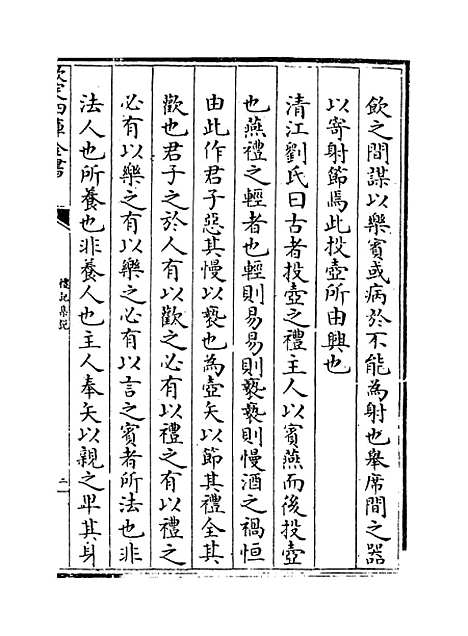 飲之間謀以樂賓或病於不能為射也舉席間之器
以寄射節焉此投壺所由興也
清江劉氏曰古者投壺之禮主人以賓燕而後投壺
也燕禮之輕者也輕則易易則褻褻則慢酒之禍恒
由此作君子惡其慢以褻也為壺矢以節其禮全其
歡也君子之於人有以歡之必有以禮之有以禮之
必有以樂之有以樂之必有以言之賓者所法也非
法人也所養也非養人也主人奉矢以親之卑其身
欽定四庫全書
禮記集說
二